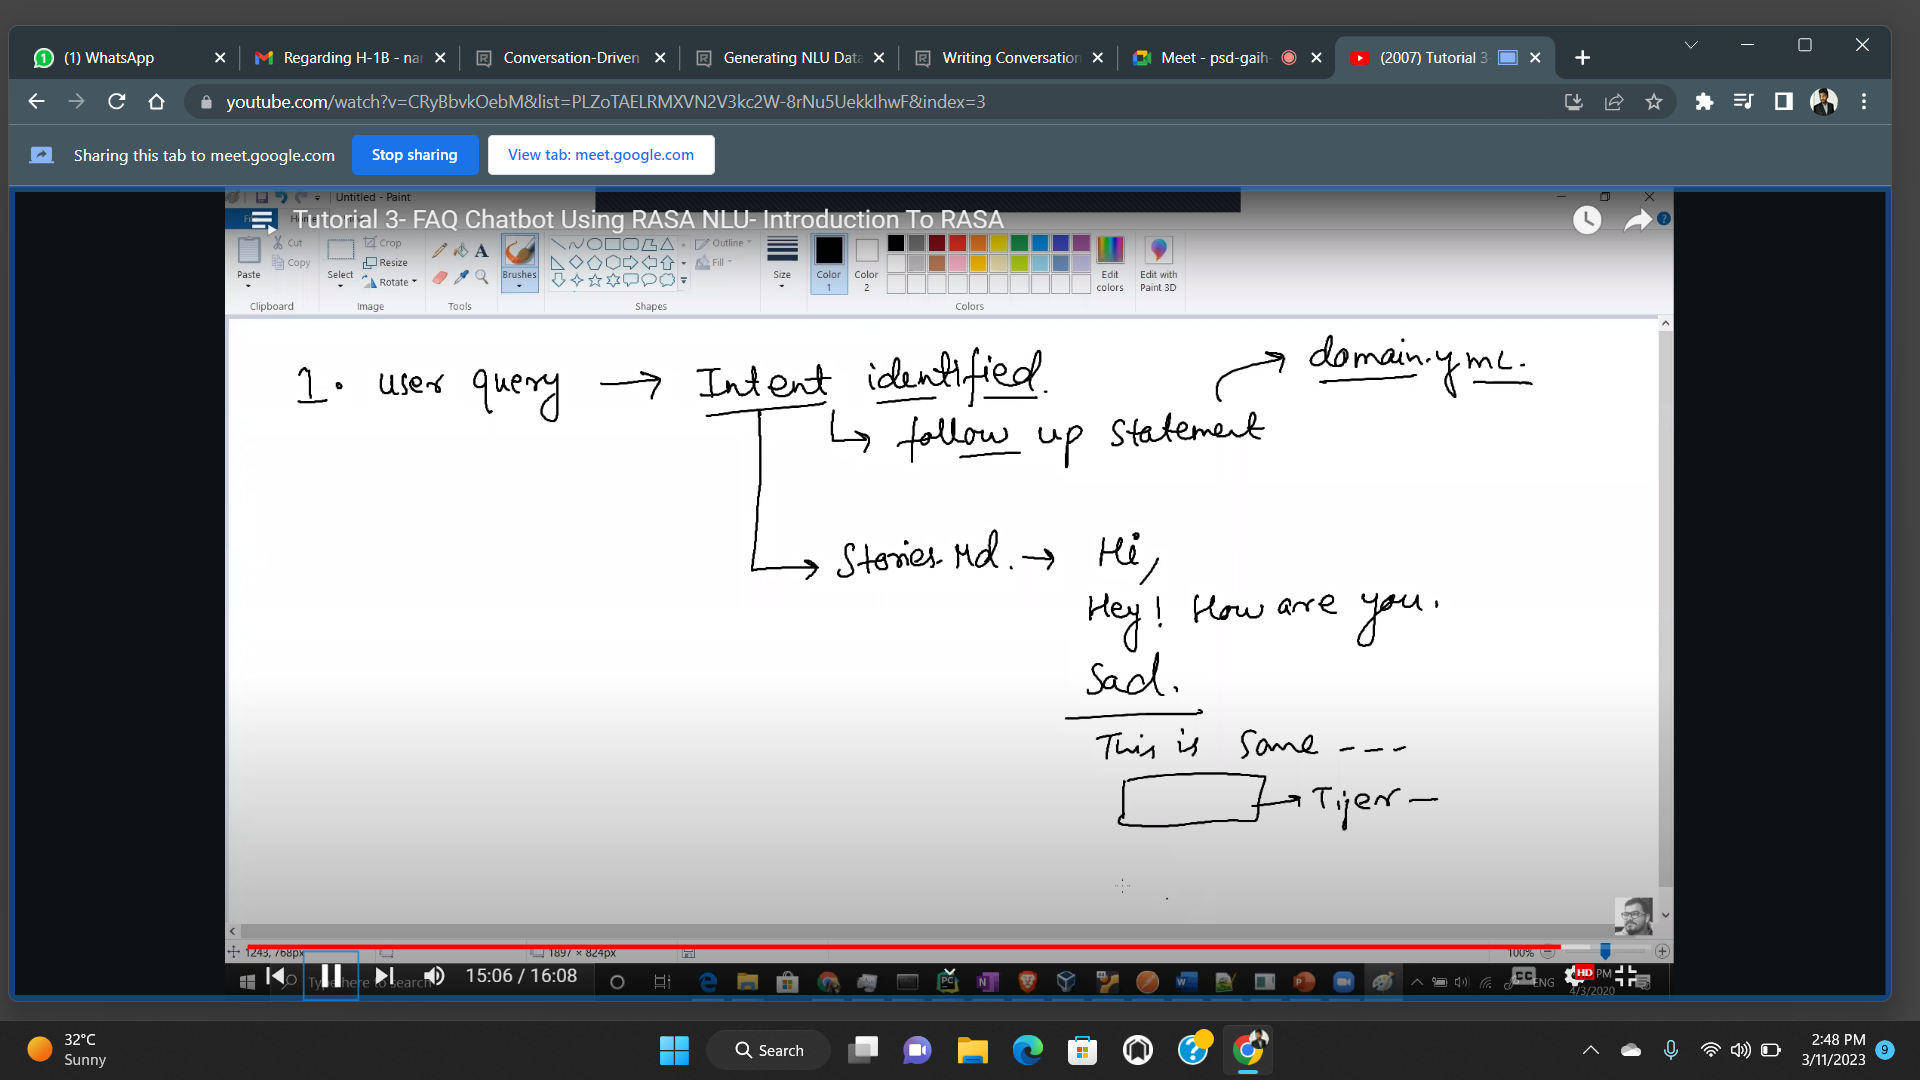 (1) WhatsApp
Regarding H-1B - nar
Conversation-Driven
Generating NLU Data
Writing Conversation
Meet - psd-gaih-
(2007) Tutorial 3-
youtube.com/watch?v=CRyBbvkOebM&list=PLZoTAELRMXVN2V3kc2W-8rNu5UekkIhwF&index=3
Sharing this tab to meet.google.com
Stop sharing
View tab: meet.google.com
Untitled - Paint
Tutorial 3- FAQ Chatbot Using RASA NLU- Introduction To RASA
Paste
Cut
Copy
Clipboard
Select
Crop
Resize
Rotate
Image
A
Tools
Brushes
Outline
Fill
Shapes
Size
Color 1
Color 2
Edit colors
Edit with Paint 3D
Colors
1. user query → Intent identified.
domain.yml.
↳ follow up statement
Stories.Md. → Hi,
Hey! How are you.
Sad.
This is some ----
1243, 768px
1897 × 824px
100%
15:06 / 16:08
Type here to search
CC
ENG
HD
PM
4/3/2020
32°C
Sunny
Search
2:48 PM
3/11/2023
9